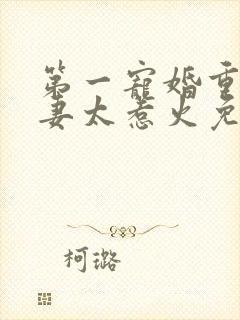 第一寵婚重
妻太惹火免
柯璐